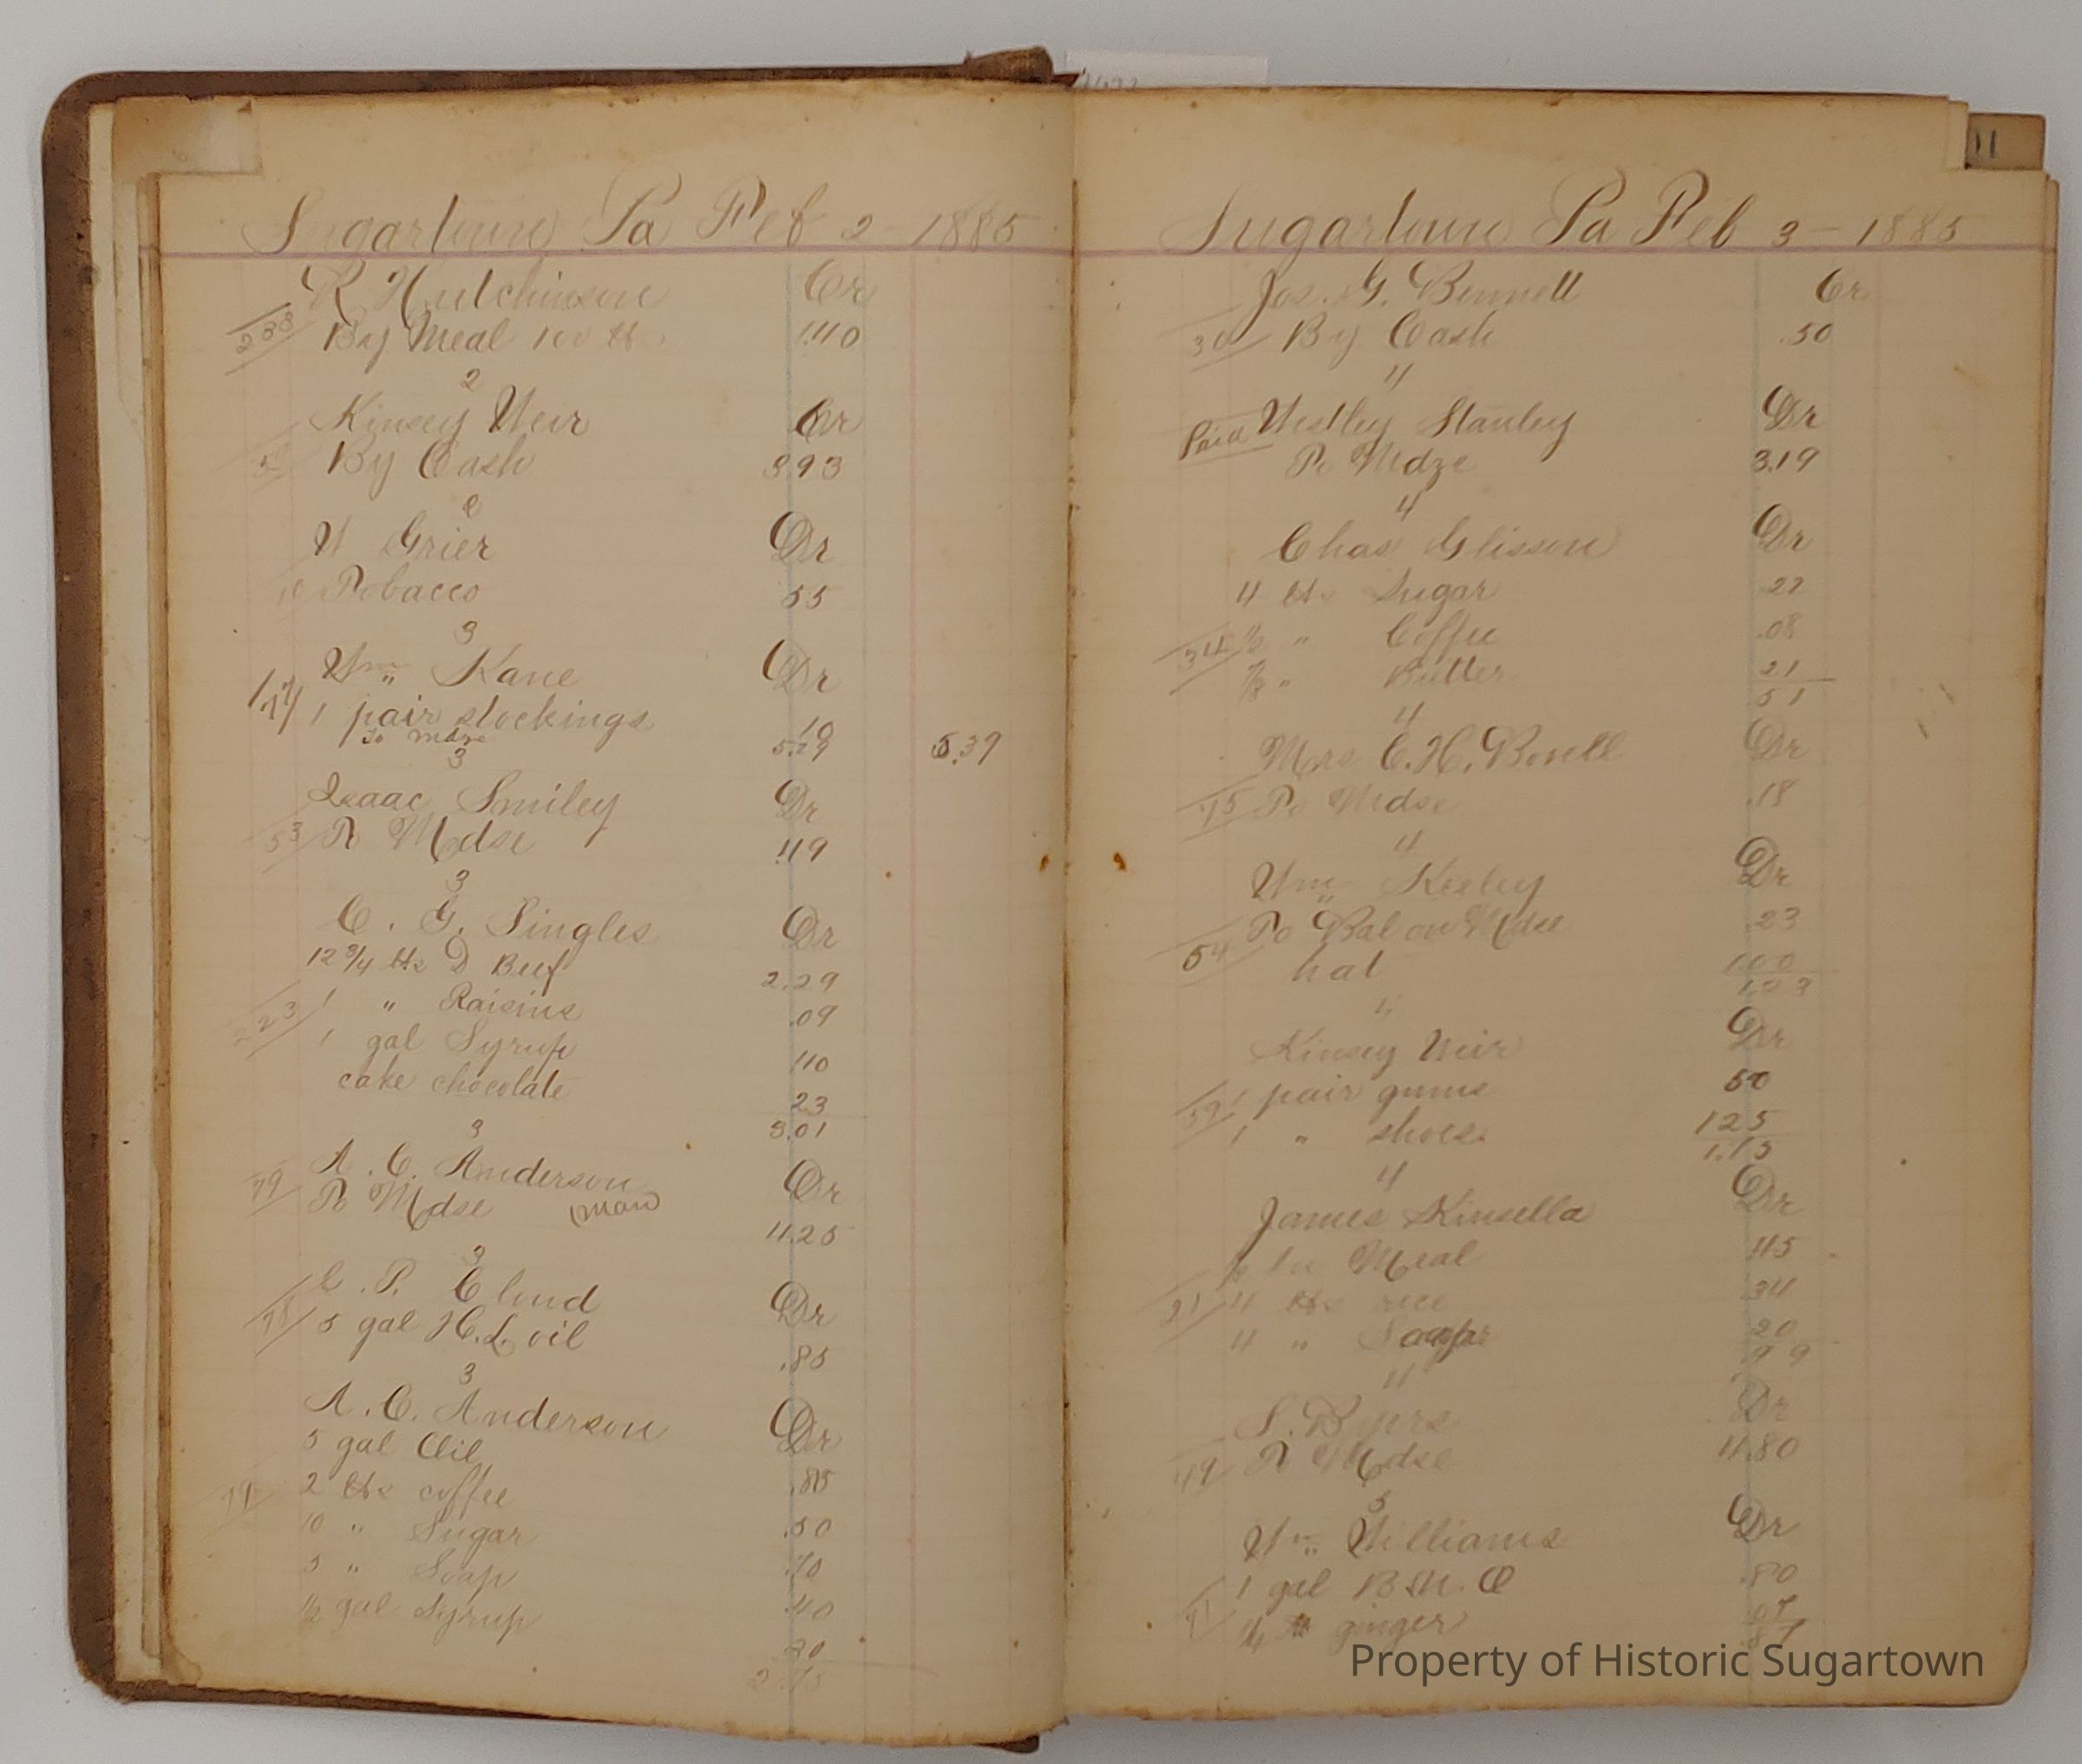 Sugartown Pa Feb 2 - 1885
R Hutchinson Cr
233 By Meal 100 lbs 1.40
2
Kinsey Weir Cr
5 By Cash 3.93
2
W Grier Dr
Tobacco 55
3
Wm Kane Dr
1 pair stockings 10
To Mdse 5.29 5.39
3
Isaac Smiley Dr
53 To Mdse .49
3
C. G. Singles Dr
12 3/4 lbs D Beef 2.29
223 1 " Raisins .09
1 gal Syrup .40
cake chocolate 23
3.01
3
A. C. Anderson Dr
79 To Mdse (man) 4.25
3
P. Eloud Dr
78 5 gal H.L. oil .85
3
A. C. Anderson Dr
5 gal Oil .85
79 2 lbs coffee .50
10 " Sugar .70
5 " Soap .40
1/2 gal Syrup 30
2.75
Sugartown Pa Feb 3 - 1885
Jos. G. Bennett Cr
30 By Cash .50
4
Paid Westley Stanley Dr
To Mdze 3.19
4
Chas Glisson Dr
4 lbs Sugar 22
34 1/2 " Coffee .08
7/8 " Butter 21
51
4
Mrs E. H. Bonell Dr
45 To Mdse .18
4
Wm Keeley Dr
To Bal on Mdse 23
54 hat 100
1.23
4
Kinsey Weir Dr
1 pair gums 50
1 " shoes 125
1.75
4
James Kinsella Dr
1/2 bu Meal 45
91 4 lbs rice 34
4 " Sugar 20
99
4
S. Byers Dr
49 To Mdse 4.80
5
Wm Williams Dr
1 gal B.M.O .80
71 1/4 lb ginger 07
87
Property of Historic Sugartown